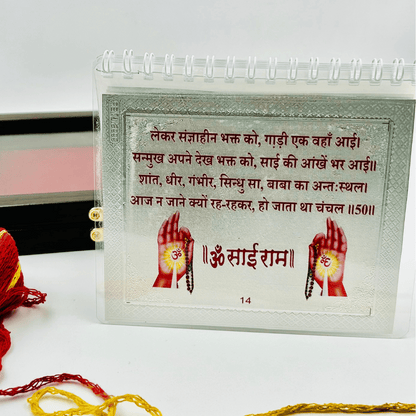 लेकर संज्ञाहीन भक्त को, गाड़ी एक वहाँ आई।
सन्मुख अपने देख भक्त को, साई की आंखें भर आई॥
शांत, धीर, गंभीर, सिन्धु सा, बाबा का अन्त:स्थल।
आज न जाने क्यों रह-रहकर, हो जाता था चंचल ॥50॥
ॐ ॥ॐ साई राम॥ ॐ
14